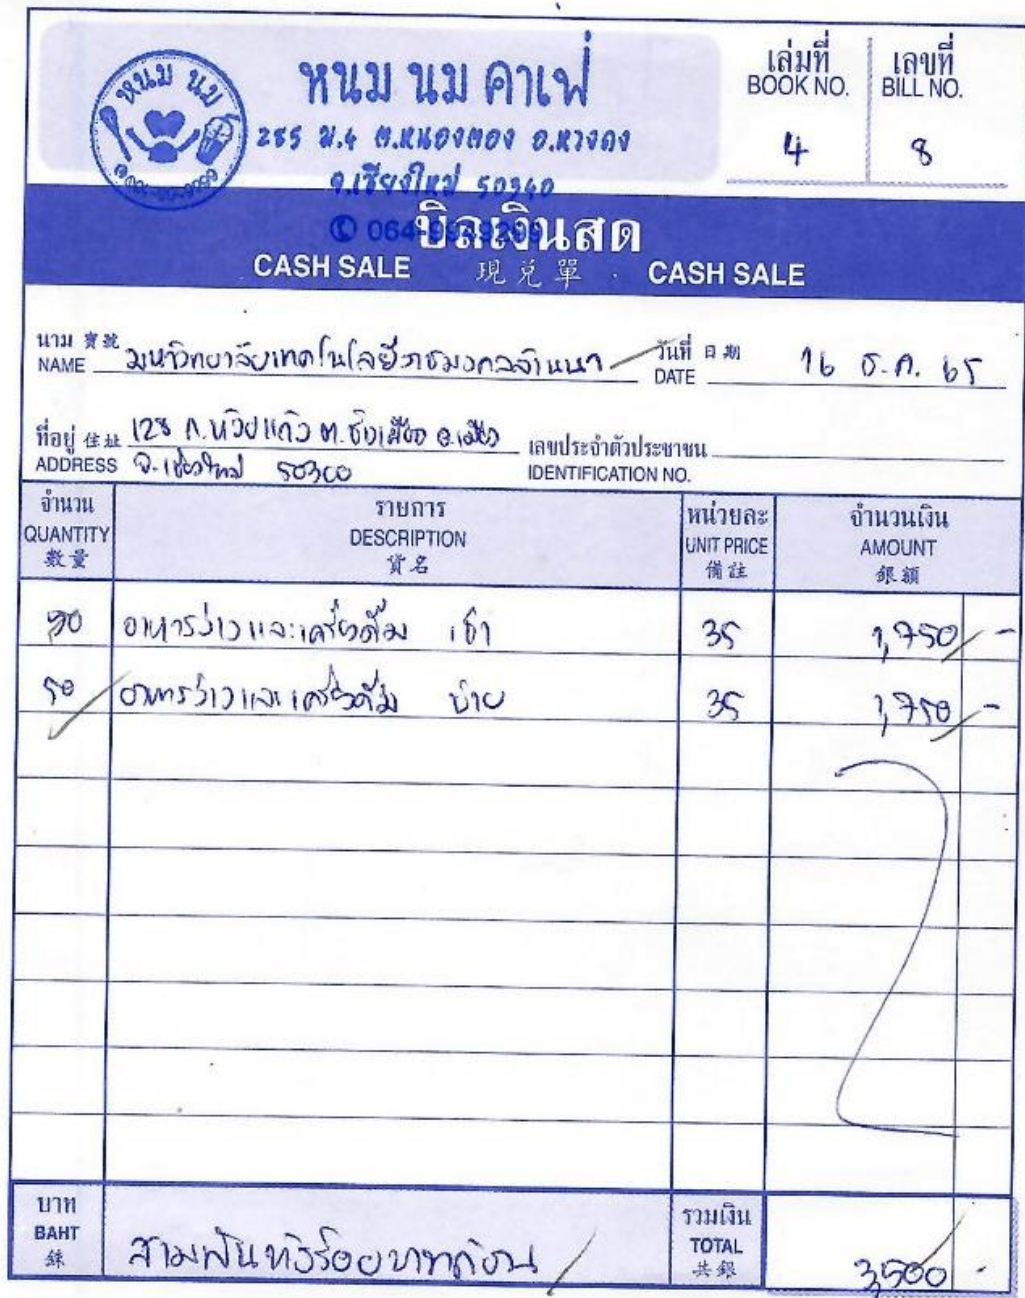 หนม นม คาเฟ่
หนม นม
255 ม.4 ต.หนองตอง อ.หางดง
จ.เชียงใหม่ 50340
เล่มที่
BOOK NO.
4
เลขที่
BILL NO.
8
บิลเงินสด
CASH SALE 現兌單 CASH SALE
นาม 寶號
NAME มหาวิทยาลัยเทคโนโลยีราชมงคลล้านนา
วันที่ 日期
DATE 16 ธ.ค. 65
ที่อยู่ 住址
ADDRESS 128 ถ.ห้วยแก้ว ต.ช้างเผือก อ.เมือง
จ.เชียงใหม่ 50300
เลขประจำตัวประชาชน
IDENTIFICATION NO.
จำนวน รายการ หน่วยละ จำนวนเงิน
QUANTITY DESCRIPTION UNIT PRICE AMOUNT
數量 貨名 備註 銀額
50 อาหารว่างและเครื่องดื่ม เช้า 35 1,750 -
50 อาหารว่างและเครื่องดื่ม บ่าย 35 1,750 -
บาท
BAHT
銖
สามพันห้าร้อยบาทถ้วน
รวมเงิน
TOTAL
共銀
3,500 -